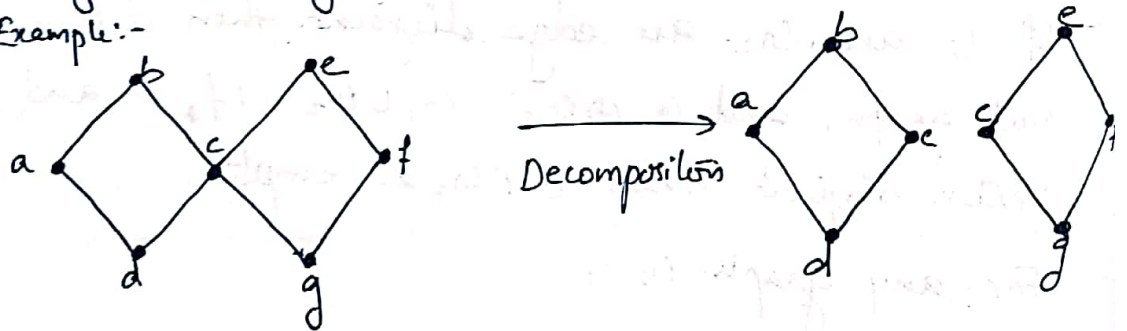 Example:-
b
e
a
c
f
d
g
Decomposition
b
a
c
d
e
c
f
g